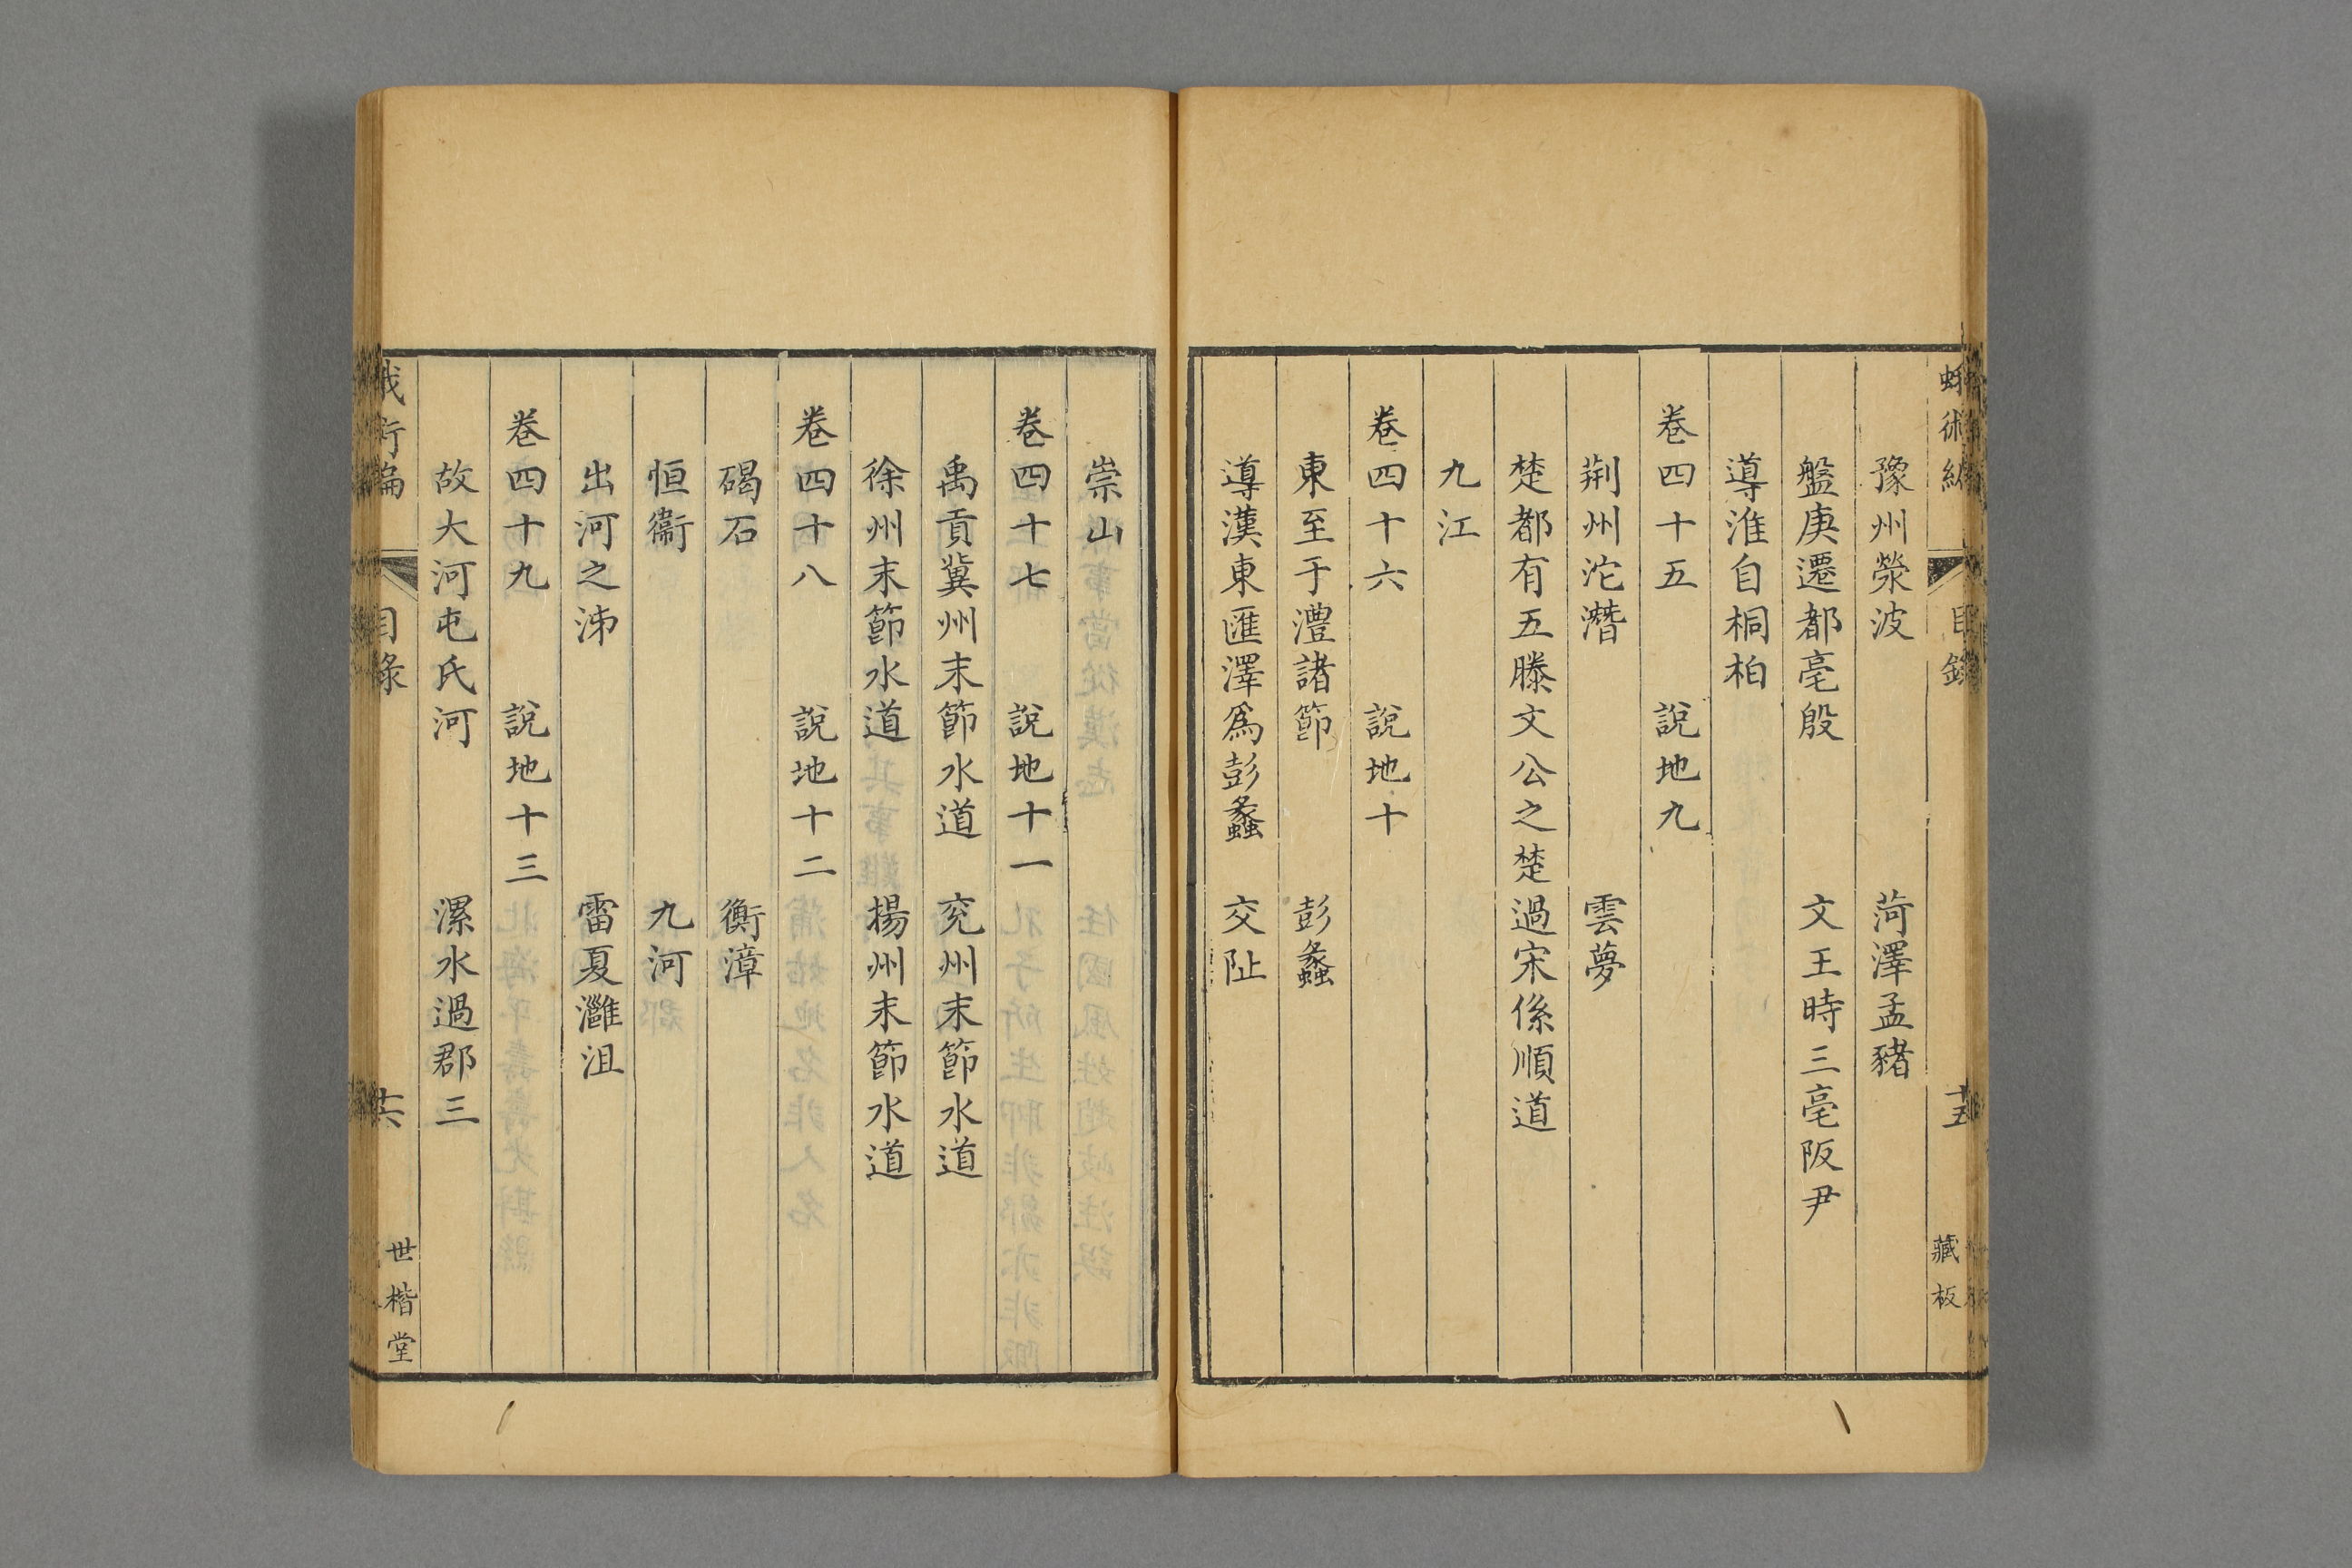 豫州滎波 菏澤孟豬
盤庚遷都亳殷 文王時三亳阪尹
導淮自桐柏
卷四十五 說地九
荆州沱潛 雲夢
楚都有五滕文公之楚過宋係順道
九江
卷四十六 說地十
東至于澧諸節 彭蠡
導漢東匯澤爲彭蠡 交阯
崇山
卷四十七 說地十一
禹貢冀州末節水道 兖州末節水道
徐州末節水道 揚州末節水道
卷四十八 說地十二
碣石 衡漳
恒衞 九河
出河之泲 雷夏灉沮
卷四十九 說地十三
故大河屯氏河 漯水過郡三
目錄 十五 藏板
目錄 十六 世楷堂